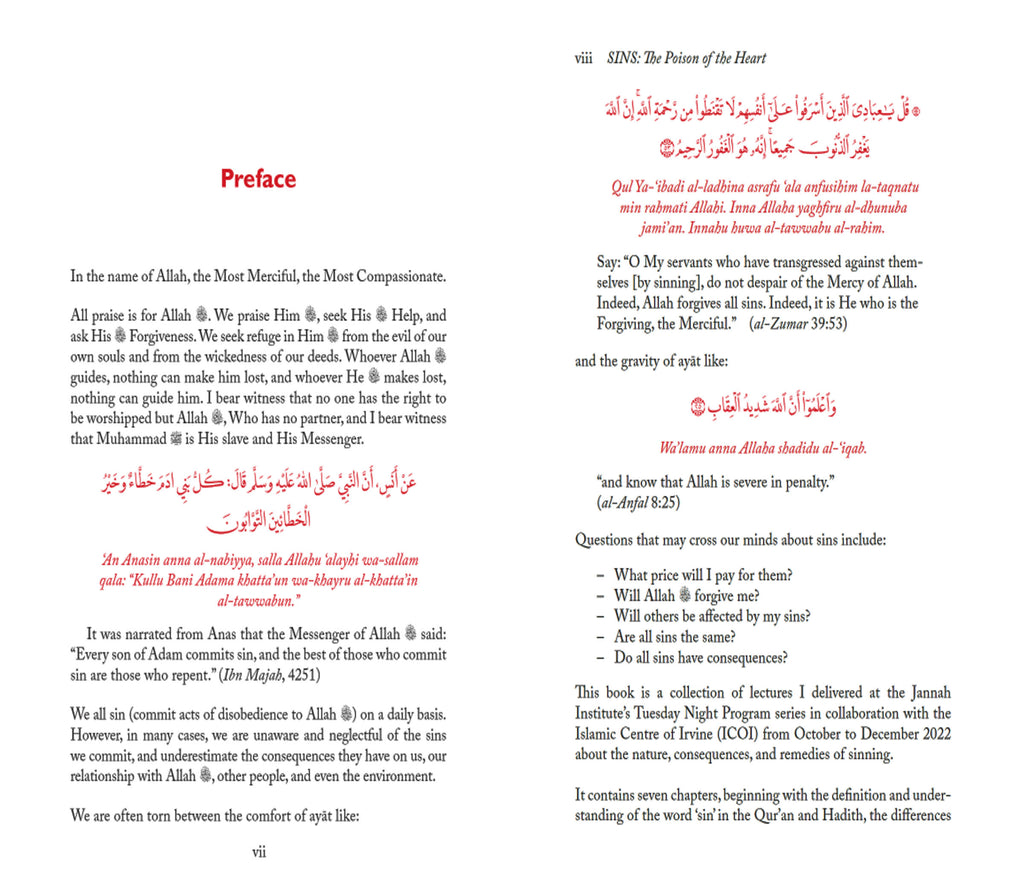 Preface
In the name of Allah, the Most Merciful, the Most Compassionate.
All praise is for Allah ﷻ. We praise Him ﷻ, seek His ﷻ Help, and
ask His ﷻ Forgiveness. We seek refuge in Him ﷻ from the evil of our
own souls and from the wickedness of our deeds. Whoever Allah ﷻ
guides, nothing can make him lost, and whoever He ﷻ makes lost,
nothing can guide him. I bear witness that no one has the right to
be worshipped but Allah ﷻ, Who has no partner, and I bear witness
that Muhammad ﷺ is His slave and His Messenger.
عَنْ أَنَسٍ، أَنَّ النَّبِيَّ صَلَّىٰ اللهُ عَلَيْهِ وَسَلَّمَ قَالَ: كُلُّ بَنِي ادَمَ خَطَّاءٌ وَخَيْرُ
الْخَطَّائِينَ التَّوَّابُونَ
‘An Anasin anna al-nabiyya, salla Allahu ‘alayhi wa-sallam
qala: “Kullu Bani Adama khatta’un wa-khayru al-khatta’in
al-tawwabun.”
It was narrated from Anas that the Messenger of Allah ﷻ said:
“Every son of Adam commits sin, and the best of those who commit
sin are those who repent.” (Ibn Majah, 4251)
We all sin (commit acts of disobedience to Allah ﷻ) on a daily basis.
However, in many cases, we are unaware and neglectful of the sins
we commit, and underestimate the consequences they have on us, our
relationship with Allah ﷻ, other people, and even the environment.
We are often torn between the comfort of ayāt like:
vii
viii SINS: The Poison of the Heart
۞ قُلْ يَـٰعِبَادِىَ ٱلَّذِينَ أَسْرَفُوا۟ عَلَىٰٓ أَنفُسِهِمْ لَا تَقْنَطُوا۟ مِن رَّحْمَةِ ٱللَّهِ ۚ إِنَّ ٱللَّهَ
يَغْفِرُ ٱلذُّنُوبَ جَمِيعًا ۚ إِنَّهُۥ هُوَ ٱلْغَفُورُ ٱلرَّحِيمُ ۝٥٣
Qul Ya-‘ibadi al-ladhina asrafu ‘ala anfusihim la-taqnatu
min rahmati Allahi. Inna Allaha yaghfiru al-dhunuba
jami’an. Innahu huwa al-tawwabu al-rahim.
Say: “O My servants who have transgressed against them-
selves [by sinning], do not despair of the Mercy of Allah.
Indeed, Allah forgives all sins. Indeed, it is He who is the
Forgiving, the Merciful.” (al-Zumar 39:53)
and the gravity of ayāt like:
وَٱعْلَمُوٓا۟ أَنَّ ٱللَّهَ شَدِيدُ ٱلْعِقَابِ ۝٢٥
Wa’lamu anna Allaha shadidu al-‘iqab.
“and know that Allah is severe in penalty.”
(al-Anfal 8:25)
Questions that may cross our minds about sins include:
– What price will I pay for them?
– Will Allah ﷻ forgive me?
– Will others be affected by my sins?
– Are all sins the same?
– Do all sins have consequences?
This book is a collection of lectures I delivered at the Jannah
Institute’s Tuesday Night Program series in collaboration with the
Islamic Centre of Irvine (ICOI) from October to December 2022
about the nature, consequences, and remedies of sinning.
It contains seven chapters, beginning with the definition and under-
standing of the word ‘sin’ in the Qur’an and Hadith, the differences